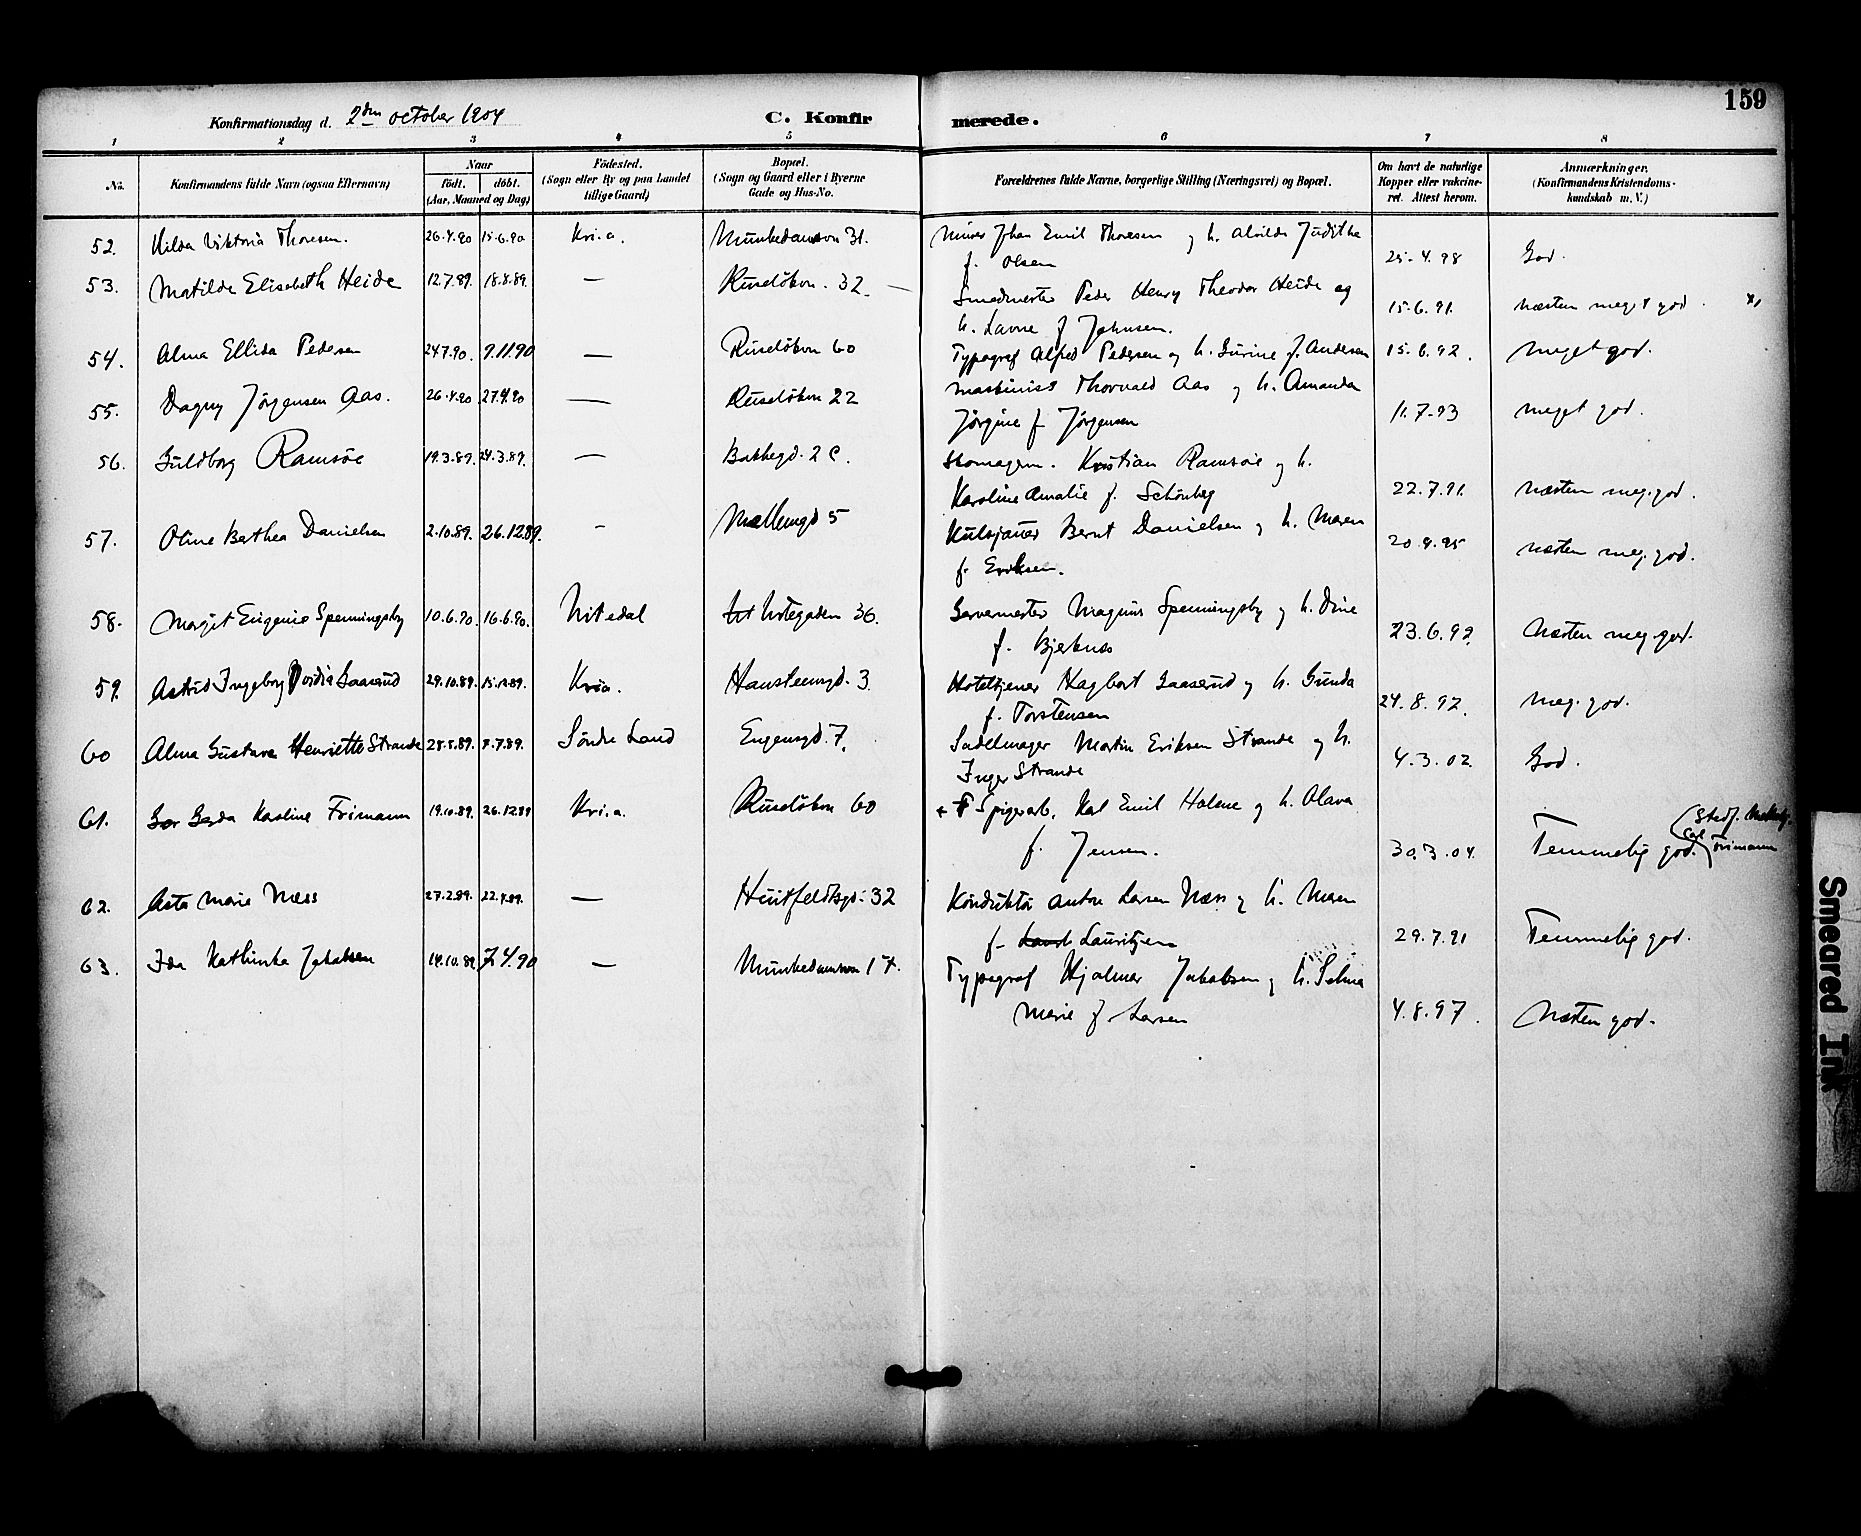 159
Konfirmationsdag d. 2den october 1904 C. Konfirmerede.
1 2 3 4 5 6 7 8
No. Konfirmandens fulde Navn (ogsaa Efternavn) Naar født. døbt. (Aar, Maaned og Dag) Födested. (Sogn eller By og paa Landet tillige Gaard) Bopæl. (Sogn og Gaard eller i Byerne Gade og Hus-No. Forældrenes fulde Navne, borgerlige Stilling (Næringsvei) og Bopæl. Om havt de naturlige Kopper eller vakcineret. Attest herom. Anmærkninger. (Konfirmandens Kristendomskundskab m. V.)
52. Hilda Viktoria Thoresen. 26.4.90 15.6.90 Kri.a. Munkedamsvn 31. Murer Johan Emil Thoresen og h. Alvilde Juditha
f. Olsen 25.4.98 God.
53. Matilde Elisabeth Heide 12.7.89. 18.8.89. — Ruseløkvn. 32. — Smedmester Peder Henry Theodor Heide og
h. Lavne f Johnsen. 15.6.91. Næsten meget god.
54. Alma Ellida Pedersen 24.7.90. 9.11.90 — Ruseløkvn 60 Typograf Alfred Pedersen og h. Gurine f. Andersen 15.6.92. Meget god.
55. Dagny Jørgensen Aas. 26.4.90 27.9.90 — Ruseløkvn 22 Maskinist Thorvald Aas og h. Amanda
Jørgine f Jørgensen 11.7.93 meget god.
56. Guldborg Ramsøe 19.3.89. 24.3.89. — Bakkegd. 2 C. Skomagerm. Kristian Ramsøe og h.
Karoline Amalie f. Schönberg 22.7.91. Næsten meg. god.
57. Oline Berthea Danielsen 2.10.89. 26.12.89. — Møllergd 5 Kulsjauer Bernt Danielsen og h. Maren
f. Eriksen. 20.9.95 Næsten meg. god.
58. Margit Eugenie Spenningsby 10.6.90. 16.6.90. Nitedal Holtegaden 36. Garvermester Magnus Spenningsby og h. Dine
f. Bjerknes 23.6.92. Næsten meg. god.
59. Astrid Ingeborg Vordis Gaaserud 29.10.89. Kria. Hansteensgd. 3. Hoteltjener Hagbart Gaaserud og h. Gunda
f. Torstensen 24.8.92. Meg. god.
60 Alma Gustava Henriette Strande 28.5.89. 7.7.89. Söndre Land Eugensgd. 7. Sadelmager Martin Eriksen Strande og h.
Inger Strande 4.3.02. God.
61. Gerda Karoline Frimann 19.10.89. 26.12.89 Kri.a. Ruseløkvn 60 Spigerarb. Karl Emil Holme og h. Olava
f. Jensen. 30.3.04. Temmelig god. (Stedf. Carl Frimann
62. Asta Marie Næss 27.2.89. 22.4.89. — Huitfeldtsgd. 32 Konduktør Anton Larsen Næss og h. Maren
f. Lauritzen 29.7.91 Temmelig god.
63. Ida Kathinka Jakobsen 14.10.89. 7.4.90 — Munkedamsvn 17. Typograf Hjalmar Jakobsen og h. Selma
Marie f Larsen 4.8.97. Næsten god.
Smeared Ink